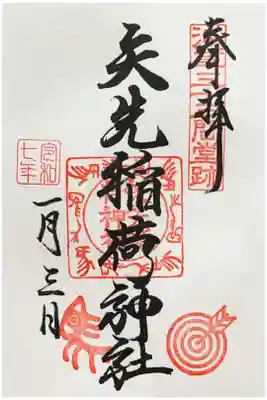 奉拝
浅草三十三間堂跡
矢先稲荷神社
令和
七年
一月三日